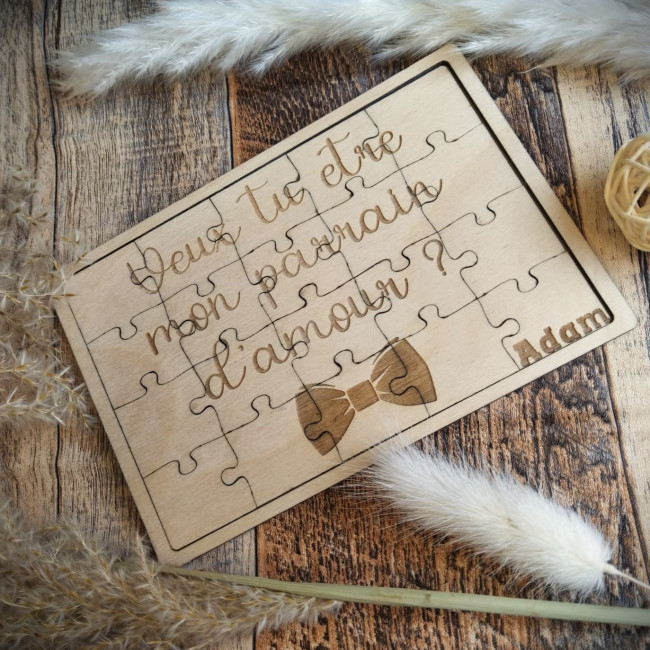 Veux tu être
mon parrain
d'amour ?
Adam